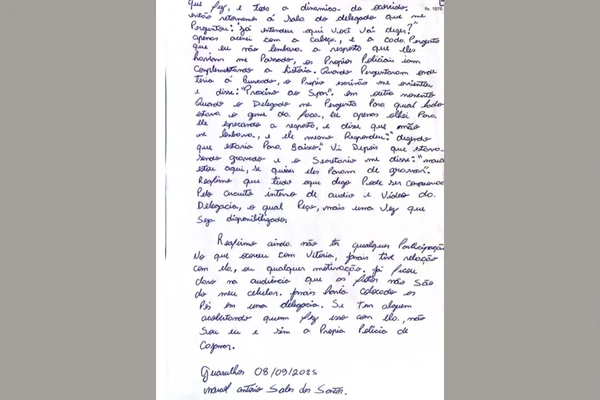 que fez, e toda a dinamica do ocorrido.
então retornamos á sala do delegado que me
Perguntou: "Já entendeu aqui você vai dizer?"
apenas acenei com a cabeça, e a cada Pergunta
que eu não lembrava a resposta que eles
haviam me Passado, os Propios Policiais iam
Complementando a história. Quando Perguntaram onde
teria á buscado, o Propio escrivão me orientou
e disse: "Proximo ao Spar". em outro momento
Quando o Delegado me Pergunta Para qual lado
estava o gume da faca. Eu apenas olhei Para
ele esperando a resposta, e disse que não
me lembrava, e ele mesmo Respondeu: dizendo
que estaria Para Baixo." Vi Depois que estava
sendo gravado e o Secretario me disse:
estou aqui, se quiser eles Param de gravar.
Reafirmo que tudo aqui digo Pode ser comprovado
Pelo circuito interno de audio e Video da
Delegacia, o qual Peço, mais uma vez que
Seja disponibilizado.
Reafirmo ainda não ter qualquer Participação
No que ocorreu com Vitória, Jamais tive relação
com ela, ou qualquer motivação. já ficou
claro na audiência que as fotos não São
do meu celular. Jamais havia colocado os
Pés em uma delegacia. Se tem alguem
acobertando quem fez isso com ela, não
Sou eu e sim a Propia Policia de
Cajamar.
Guarulhos 08/09/2025
antonio Sales dos Santos.